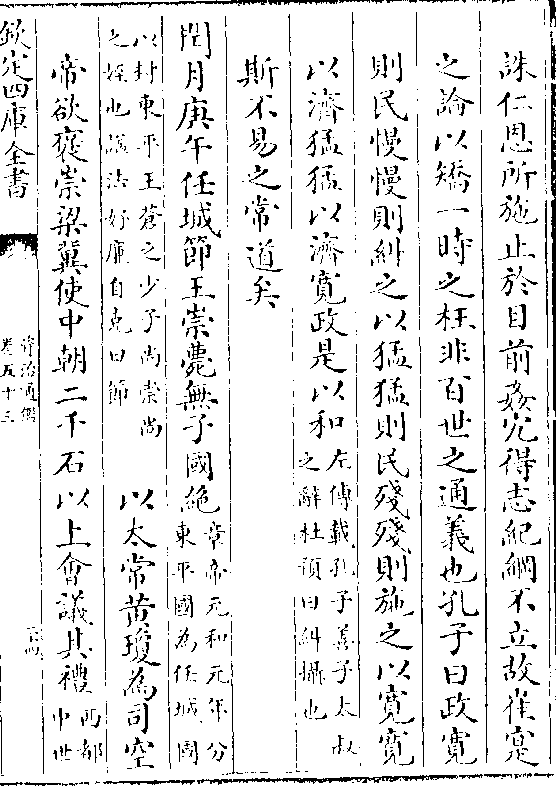 誅仁恩所施止於目前姦宄得志紀綱不立故崔寔
之論以矯一時之枉非百世之通義也孔子曰政寛
則民慢慢則糾之以猛猛則民殘殘則施之以寛寛
以濟猛猛以濟寛政是以和左傳載孔子善子太叔
之辭杜預曰糾攝也
斯不易之常道矣
閏月庚午任城節王崇薨無子國絶章帝元和元年分
東平國為任城國
以封東平王蒼之少子尚崇尚
之姪也諡法好廉自克曰節
以太常黄瓊為司空
帝欲襃崇梁冀使中朝二千石以上會議其禮西都
中世
欽定四庫全書
資治通鑑
卷五十三